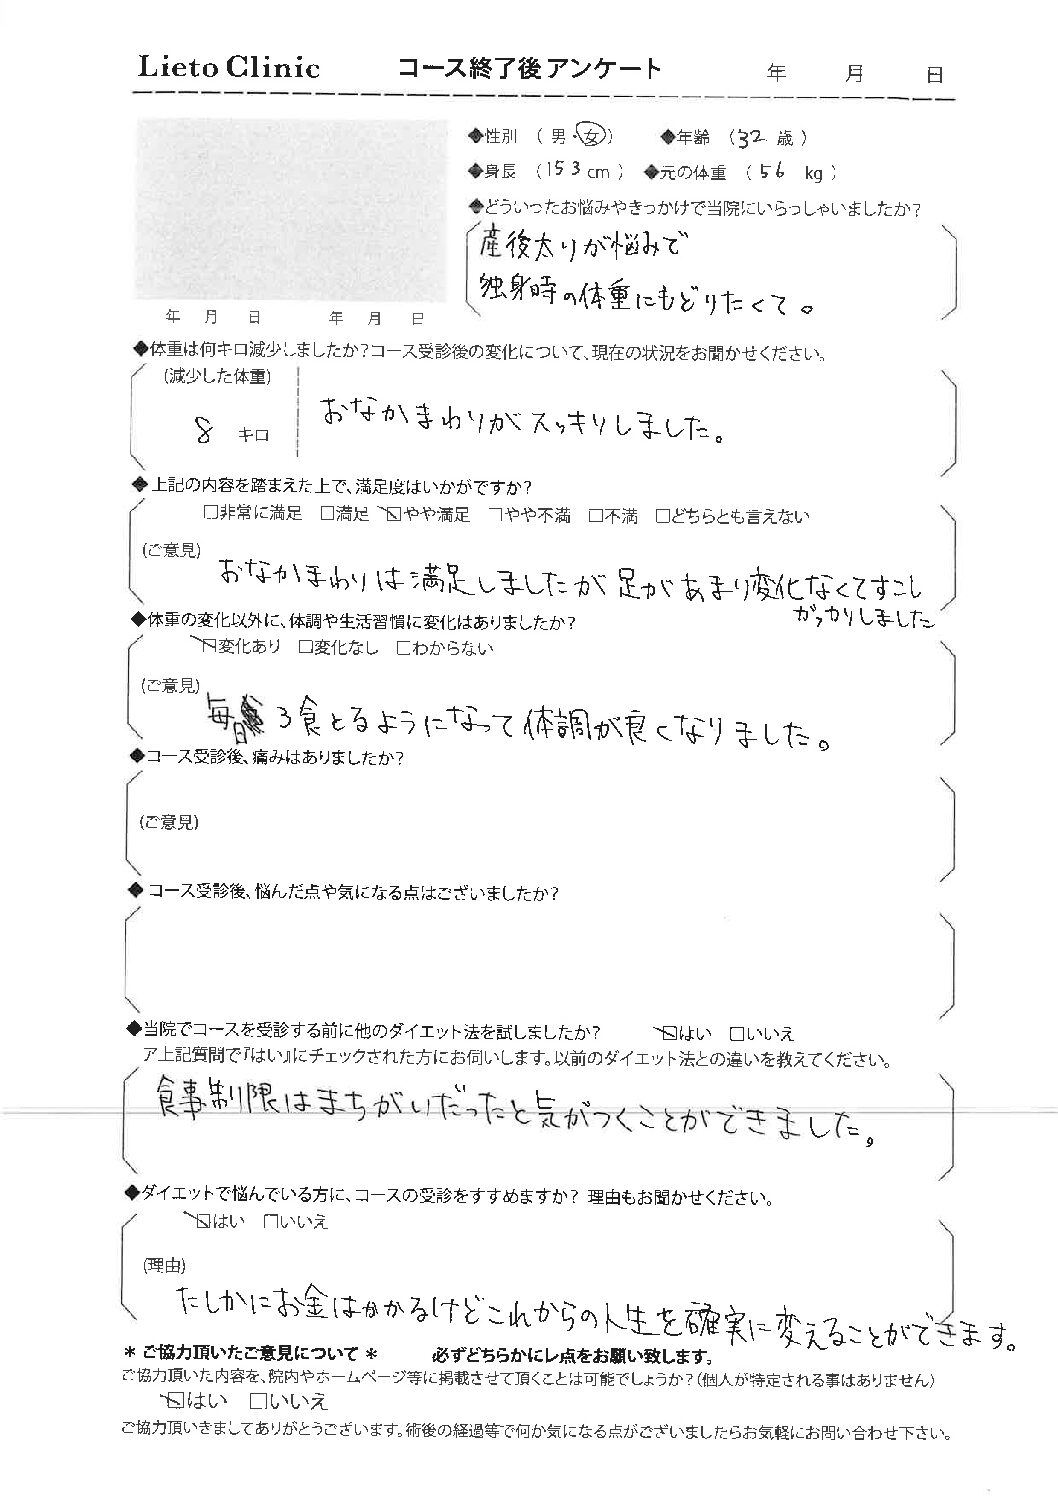 Lieto Clinic コース終了後アンケート 年 月 日
◆性別 （ 男・女） ◆年齢 （32 歳 ）
◆身長 （153cm ） ◆元の体重 （ 56 kg ）
◆どういったお悩みやきっかけで当院にいらっしゃいましたか?
産後太りが悩みで
独身時の体重にもどりたくて。
年 月 日 年 月 日
◆体重は何キロ減少しましたか?コース受診後の変化について、現在の状況をお聞かせください。
(減少した体重)
8 キロ おなかまわりがスッキリしました。
◆上記の内容を踏まえた上で、満足度はいかがですか?
□非常に満足 □満足 ☑やや満足 □やや不満 □不満 □どちらとも言えない
(ご意見)
おなかまわりは満足しましたが足があまり変化なくてすこし
がっかりしました
◆体重の変化以外に、体調や生活習慣に変化はありましたか?
☑変化あり □変化なし □わからない
(ご意見)
毎日3食とるようになって体調が良くなりました。
◆コース受診後、痛みはありましたか?
(ご意見)
◆コース受診後、悩んだ点や気になる点はございましたか?
◆当院でコースを受診する前に他のダイエット法を試しましたか? ☑はい □いいえ
ア上記質問で『はい』にチェックされた方にお伺いします。以前のダイエット法との違いを教えてください。
食事制限はまちがいだったと気がつくことができました。
◆ダイエットで悩んでいる方に、コースの受診をすすめますか? 理由もお聞かせください。
☑はい □いいえ
(理由)
たしかにお金はかかるけどこれからの人生を確実に変えることができます。
＊ご協力頂いたご意見について＊ 必ずどちらかにレ点をお願い致します。
ご協力頂いた内容を、院内やホームページ等に掲載させて頂くことは可能でしょうか?(個人が特定される事はありません)
☑はい □いいえ
ご協力頂いきましてありがとうございます。術後の経過等で何か気になる点がございましたらお気軽にお問い合わせ下さい。